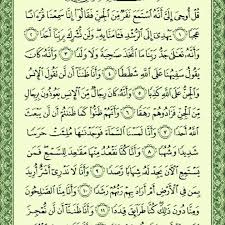 قُلْ أُوحِىَ إِلَىَّ أَنَّهُ ٱسْتَمَعَ نَفَرٌ مِّنَ ٱلْجِنِّ فَقَالُوٓا۟ إِنَّا سَمِعْنَا قُرْءَانًا
عَجَبًا ١ يَهْدِىٓ إِلَى ٱلرُّشْدِ فَـَٔامَنَّا بِهِۦ وَلَن نُّشْرِكَ بِرَبِّنَآ أَحَدًا ٢
وَأَنَّهُۥ تَعَـٰلَىٰ جَدُّ رَبِّنَا مَا ٱتَّخَذَ صَـٰحِبَةً وَلَا وَلَدًا ٣ وَأَنَّهُۥ كَانَ
يَقُولُ سَفِيهُنَا عَلَى ٱللَّهِ شَطَطًا ٤ وَأَنَّا ظَنَنَّآ أَن لَّن تَقُولَ ٱلْإِنسُ
وَٱلْجِنُّ عَلَى ٱللَّهِ كَذِبًا ٥ وَأَنَّهُۥ كَانَ رِجَالٌ مِّنَ ٱلْإِنسِ يَعُوذُونَ بِرِجَالٍ
مِّنَ ٱلْجِنِّ فَزَادُوهُمْ رَهَقًا ٦ وَأَنَّهُمْ ظَنُّوا۟ كَمَا ظَنَنتُمْ أَن لَّن يَبْعَثَ
ٱللَّهُ أَحَدًا ٧ وَأَنَّا لَمَسْنَا ٱلسَّمَآءَ فَوَجَدْنَـٰهَا مُلِئَتْ حَرَسًا
شَدِيدًا وَشُهُبًا ٨ وَأَنَّا كُنَّا نَقْعُدُ مِنْهَا مَقَـٰعِدَ لِلسَّمْعِ فَمَن
يَسْتَمِعِ ٱلْـَٔانَ يَجِدْ لَهُۥ شِهَابًا رَّصَدًا ٩ وَأَنَّا لَا نَدْرِىٓ أَشَرٌّ أُرِيدَ
بِمَن فِى ٱلْأَرْضِ أَمْ أَرَادَ بِهِمْ رَبُّهُمْ رَشَدًا ١٠ وَأَنَّا مِنَّا ٱلصَّـٰلِحُونَ
وَمِنَّا دُونَ ذَٰلِكَ كُنَّا طَرَآئِقَ قِدَدًا ١١ وَأَنَّا ظَنَنَّآ أَن لَّن نُّعْجِزَ